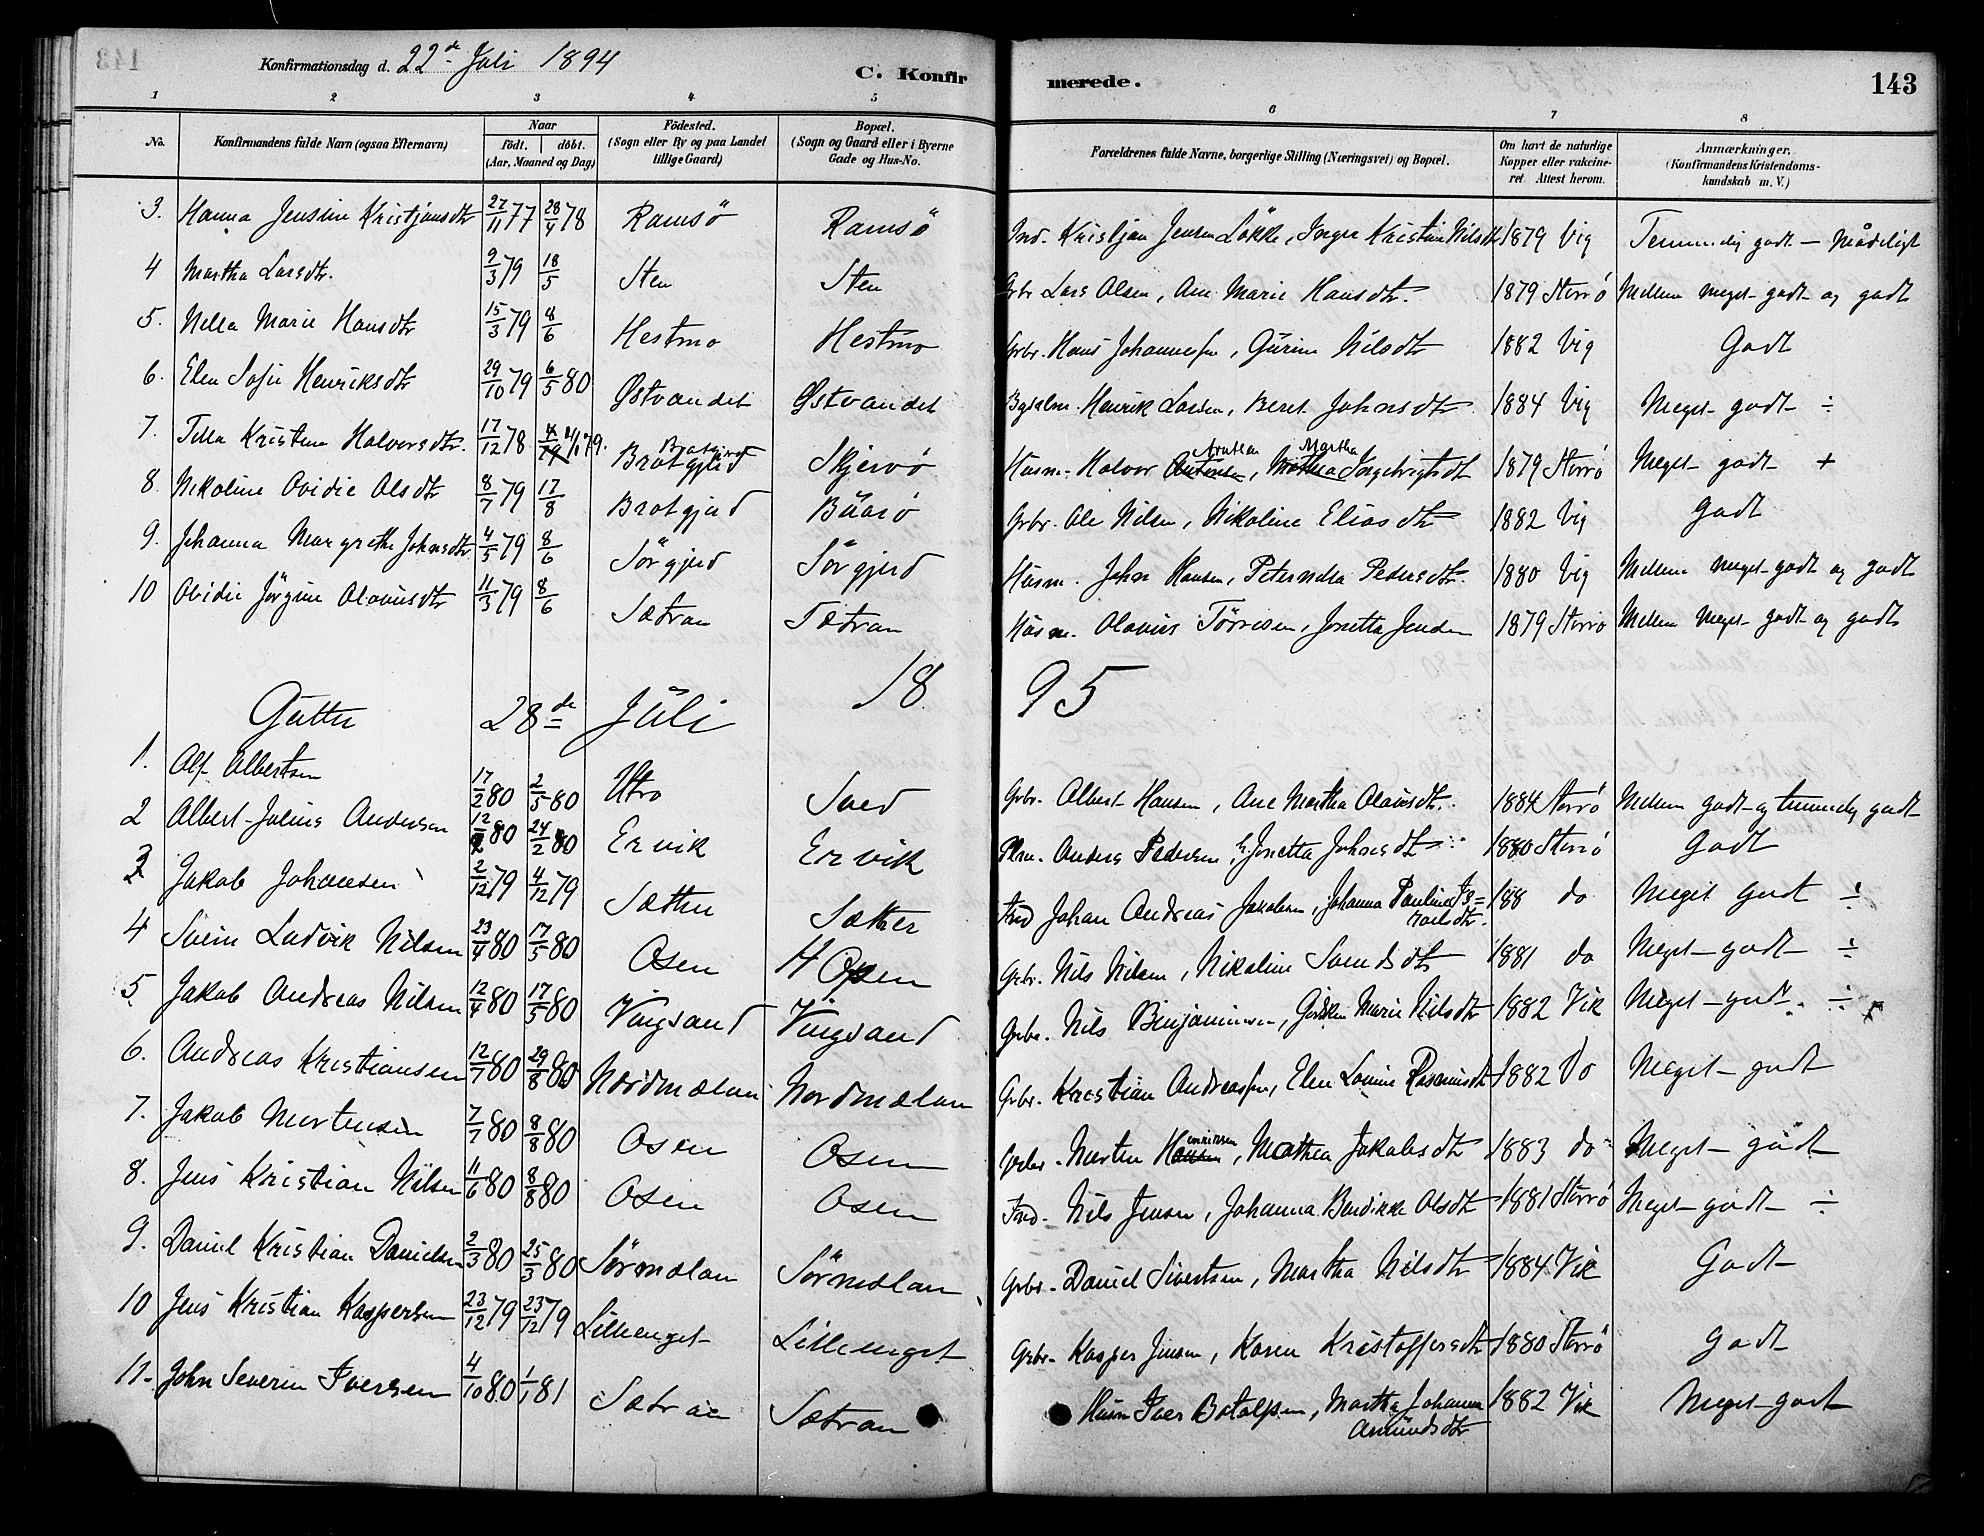 Konfirmationsdag d. 22de Juli 1894
C. Konfirmerede.
143
1 2 3 4 5 6 7 8
No.
Konfirmandens fulde Navn (ogsaa Efternavn)
Naar
födt. döbt.
(Aar, Maaned og Dag)
Födested.
(Sogn eller By og paa Landet
tillige Gaard)
Bopæl.
(Sogn og Gaard eller i Byerne
Gade og Hus-No.
Forældrenes fulde Navne, borgerlige Stilling (Næringsvei) og Bopæl.
Om havt de naturlige
Kopper eller vakcine-
ret. Attest herom.
Anmærkninger.
(Konfirmandens Kristendoms-
kundskab m. V.)
3. Hanna Jensine Kristjansdtr 27/11 77 28/4 78 Ramsö Ramsö Ind. Kristjan Jensen Løkke, Inger Kristine Nilsdtr 1879 Vig Temmelig godt - Mådeligt
4 Martha Larsdtr. 9/3 79 18/5 Sten Sten Grbr Lars Olsen, Ane Marie Hansdtr. 1879 Storrö Mellem meget godt og godt
5. Nella Marie Hansdtr 15/3 79 8/6 Hestmo Hestmo Grbr. Hans Johannessen, Gurine Nilsdtr 1882 Vig Godt
6. Elen Sofie Henriksdtr 29/10 79 6/5 80 Østvandet Østvandet Henrik Larsen, Beret Johnsdtr 1884 Vig Meget godt ÷
7. Tilla Kristine Halvorsdtr. 17/12 78 79. Bratgjerd Skjervö Husm. Halvor Arntsen, Martha Ingebrigtsdtr 1879 Storrö Meget godt +
8. Nikoline Ovidie Olsdtr 8/7 79 17/8 Bratgjerd Buarö Grbr. Ole Nilsen, Nikoline Eliasdtr 1882 Vig Godt
9. Johanna Margrethe Johnsdtr 4/5 79 8/6 Sörgjerd Sörgjerd Husm. John Hansen, Peternella Pedersdtr. 1880 Vig Mellem meget godt og godt
10 Ovidie Jörgine Olausdtr 11/3 79 8/6 Sætran Sætran Husm. Olavus Törrisen, Jonetta Jensdtr 1879 Storrö Mellem meget godt og godt
18 95
Gutter 28de Juli
1. Alf Albertsen 17/2 80 2/5 80 Utro Sved Grbr. Albert Hansen, Ane Martha Olausdtr. 1884 Storrö Mellem godt og temmelig godt
2 Albert Julius Andersen 12/2 80 24/2 80 Ervik Ervik Anders Pedersen, Jonetta Johnsdtr 1880 Storrö Godt
3 Jakob Johansen 2/12 79 4/12 79 Sæther Sæther Ind Johan Andreas Jakobsen, Johanna Pauline Is=
raelsdtr. 188 do Meget godt ÷
4 Svein Ludvik Nilsen 23/4 80 17/5 80 Osen H Osen Grbr. Nils Nilsen, Nikoline Svendsdtr 1881 do Meget godt ÷
5. Jakob Andreas Nilsen 12/4 80 17/5 80 Vingsand Vingsand Grbr. Nils Benjaminsen, Marie Nilsdtr 1882 Vik Meget godt. ÷
6. Andreas Kristiansen 12/7 80 29/8 80 Nordmælan Nordmælan Grbr. Kristian Andreassen, Elen Lovise Rasmusdtr 1882 Do Meget godt
7. Jakob Mortensen 7/7 80 8/8 80 Osen Osen Grbr. Morten Henriksen, Mathea Jakobsdtr 1883 do Meget godt
8. Jens Kristian Nilsen 11/6 80 8/8 80 Osen Osen Ind. Nils Jensen, Johanna Bendikke Olsdtr 1881 Storrö Meget godt ÷
9. Daniel Kristian Danielsen 2/3 80 25/3 80 Sörmælan Sörmælan Grbr. Daniel Sivertsen, Martha Nilsdtr 1884 Vik Godt
10 Jens Kristian Kaspersen 23/12 79 23/12 79 Lilleenget Lilleenget Grbr. Kasper Jensen, Karen Kristoffersdtr 1880 Storrö Godt
11. John Severin Iversen 4/10 80 1/1 81 Sætran Sætran Husm Iver Botolfsen, Martha Johanna
Amundsdtr 1882 Vik Meget godt